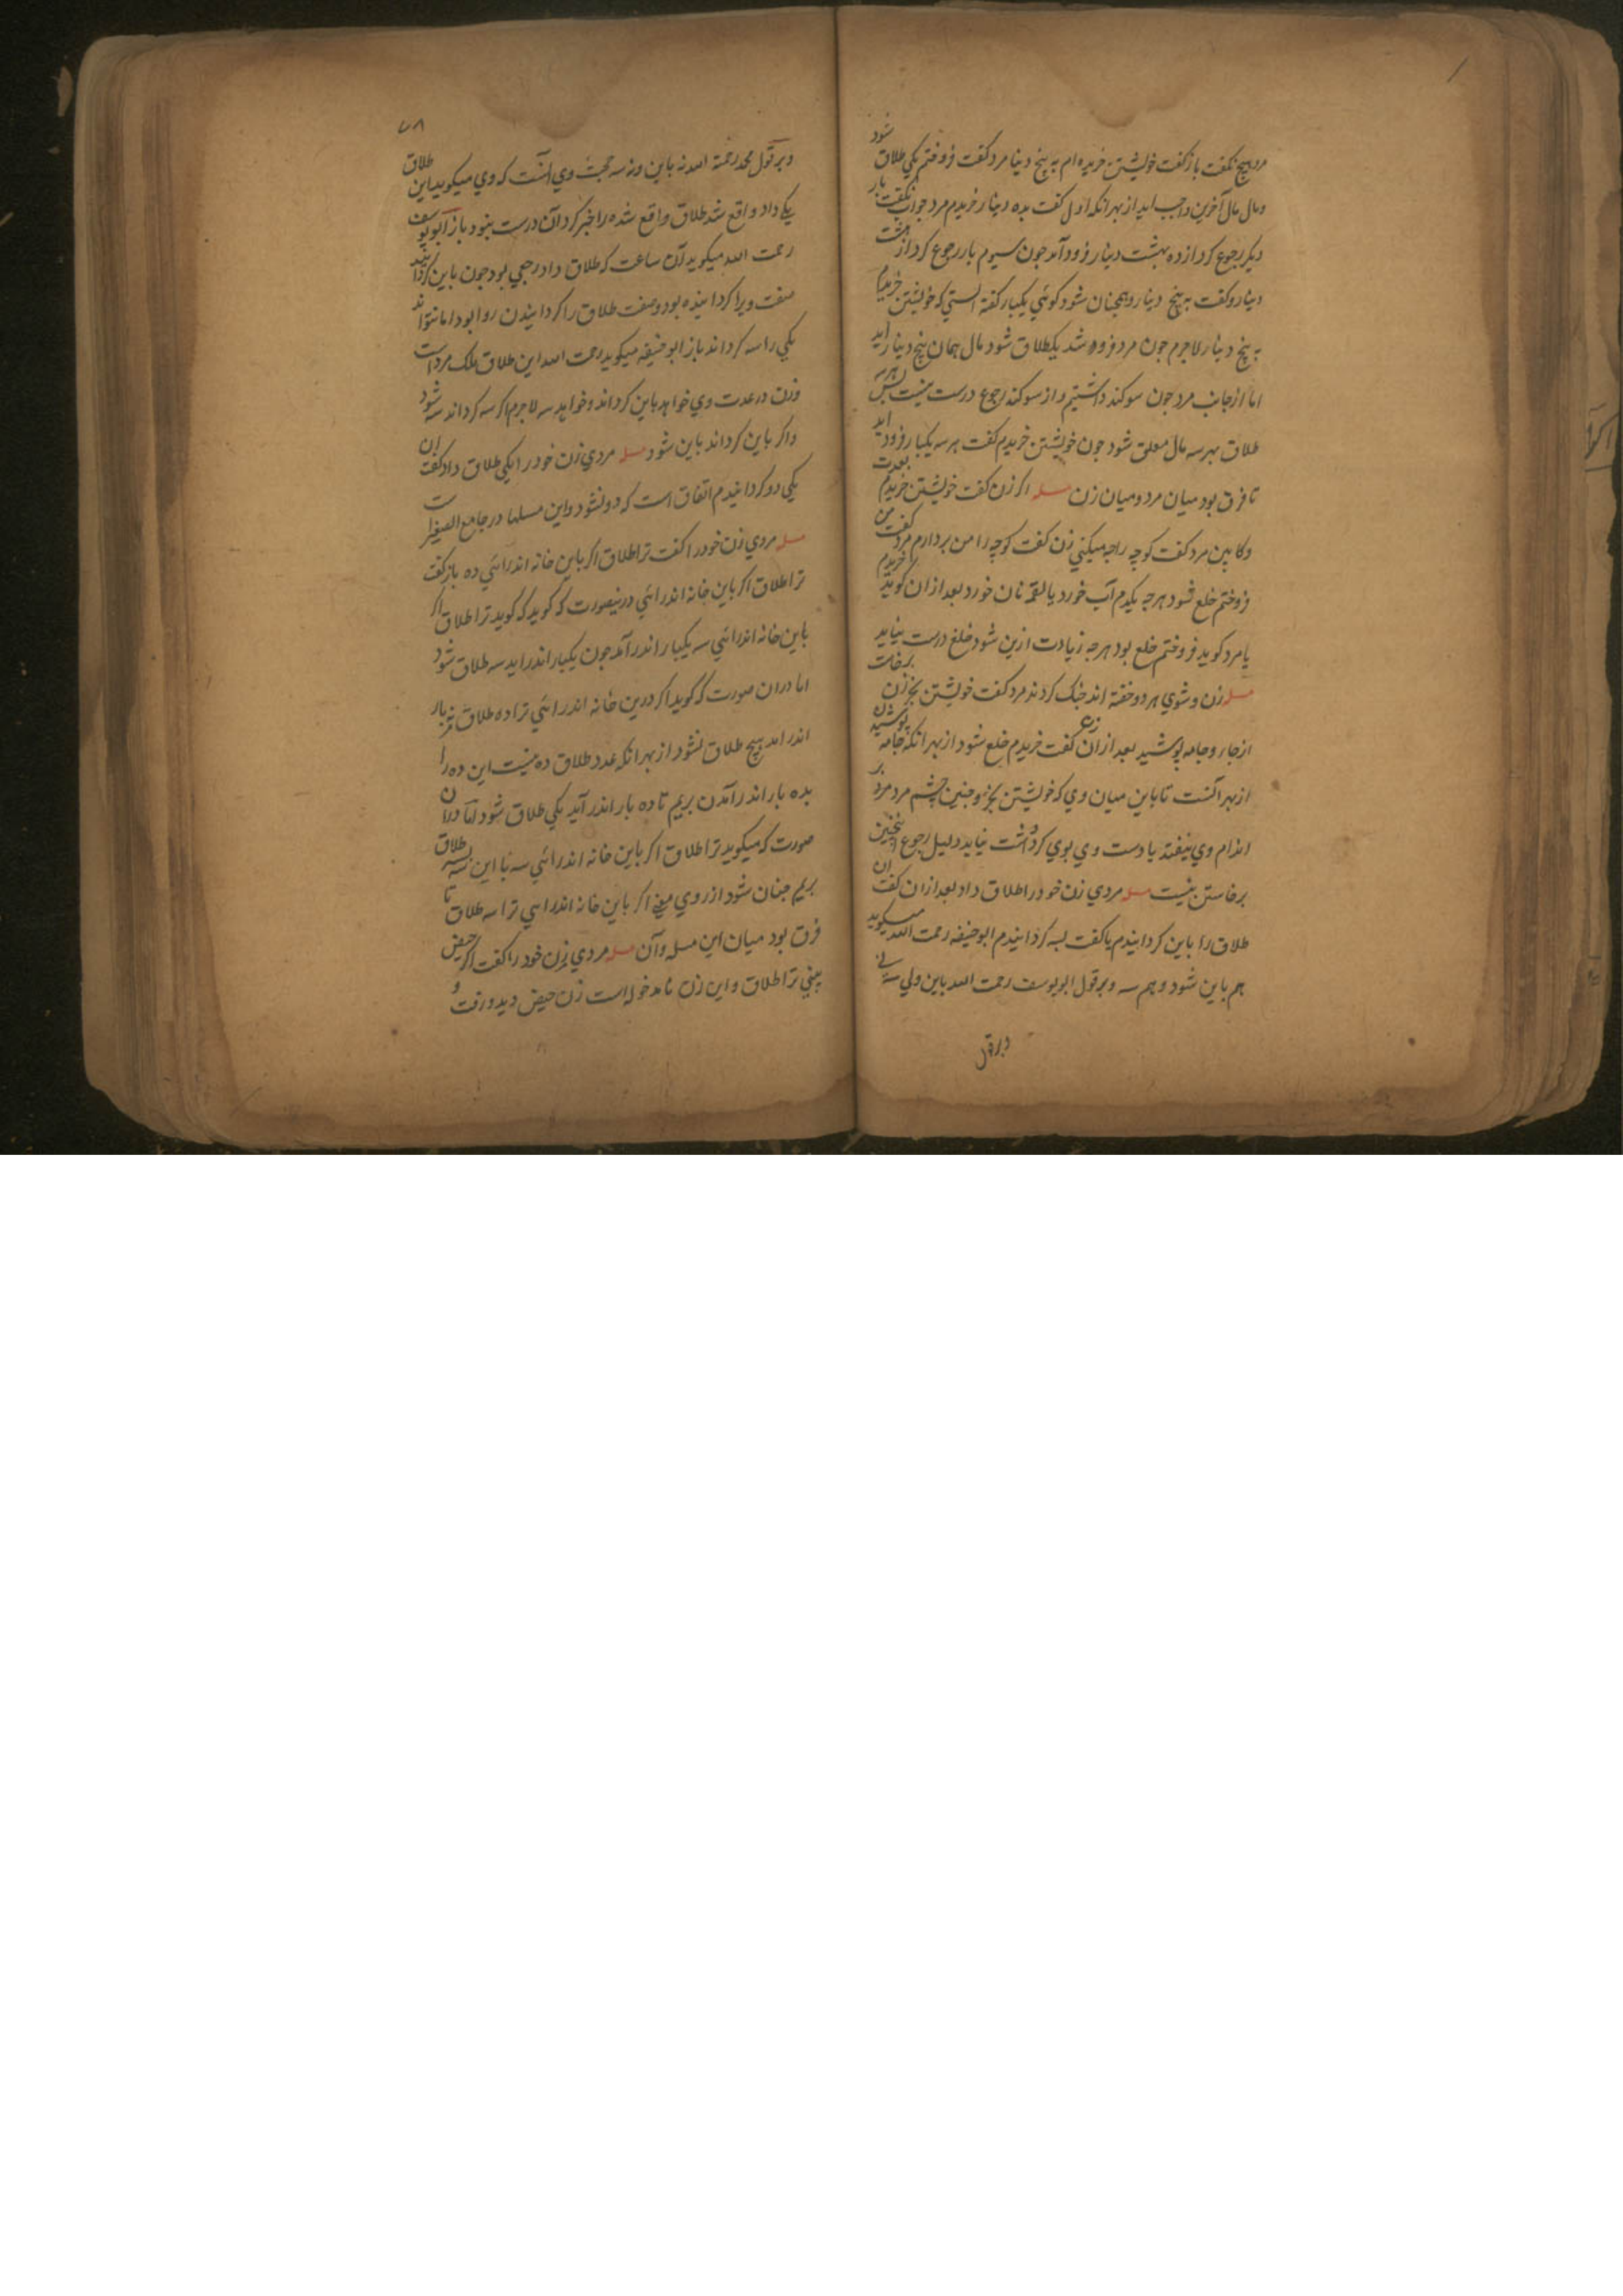 مرد هیچ نکفت باز کفت خویشتن خریده ام به پنج دینار مرد کفت فروختم یکی طلاق شود
ومال مال آخرین واجب اید از بهر انکه اول کفت بده دینار خریدم مرد جواب نکفت بار
دیکر رجوع کرد از ده بهشت دینار فرود آمد جون سیوم بار رجوع کرد از هشت
دینار وکفت به پنج دینار وهمچنان شود کوئي یکبار کفته استي که خویشتن خریدم
به پنج دینار لاجرم جون مرد فروشد یکطلاق شود مال همان پنج دینار اید
اما از جانب مرد جون سوکند داشتیم واز سوکند رجوع درست نیست پس هر سه
طلاق بهر سه مال معلق شود جون خویشتن خریدم کفت هر سه یکبار فرود اید
تا فرق بود میان مرد ومیان زن مسله اکر زن کفت خویشتن خریدم بعدت
وکابین مرد کفت کوچه راجه میکنی زن کفت کوچه را من بردارم مرد کفت من
فروختم خلع شود هر جه یکدم آب خورد یا لقمه نان خورد بعد از ان کوید خریدم
یا مرد کوید فروختم خلع بود هر جه زیادت ازین شود خلع درست نیاید
مسله زن وشوي هر دو خفته اند جنک کردند مرد کفت خویشتن بخر زن برخاست
از جاء وجامه پوشید بعد از ان کفت خریدم خلع شود از بهر انکه جامه پوشیدن
از بهر آنست تا باین میان وي که خویشتن بخرد وجنین چشم مرد مرد بر
اندام وي نیفتد یا دست وي بوي کرد داشت نیاید دلیل رجوع اینچنین
برخاستن نیست مسله مردي زن خود را طلاق داد بعد از ان کفت ان
طلاق را باین کردانیدم یا کفت بسه کردانیدم ابو حنیفه رحمت الله میکوید
هم باین شود وهم سه وبر قول ابو یوسف رحمت الله باین ولي سه ني
وبر قول
۷۸
وبر قول محمد رحمة الله نه باین ونه سه حجت وي آنست که وي میکوید این طلاق
یکي داد واقع شد طلاق واقع شده را خبر کردان درست نبود باز ابو یوسف
رحمت الله میکوید آن ساعت که طلاق داد رجعي بود جون باین کردانید
صفت ویرا کردانیده بود وصفت طلاق را کردانیدن روا بود اما نتواند
یکي را سه کرداند باز ابو حنیفه میکوید رحمت الله این طلاق ملک مرد است
وزن در عدت وي خواهد باین کرداند وخواهد سه لاجرم اکر سه کرداند سه شود
واکر باین کرداند باین شود مسله مردي زن خود را یکي طلاق داد کفت ان
یکي دو کردانیدم اتفاق است که دو نشود واین مسلها در جامع الصغیر است
مسله مردي زن خود را کفت ترا طلاق اکر باین خانه اندر ائي ده باز کفت
ترا طلاق اکر باین خانه اندر ائي درینصورت که کوید که کوید ترا طلاق اکر
باین خانه اندر ائي سه یکبار اندر آمد جون یکبار اندر اید سه طلاق شود
اما در ان صورت که کوید اکر درین خانه اندر ائي ترا ده طلاق هر بار
اندر اید هیچ طلاق نشود از بهر انکه عدد طلاق ده نیست این ده را
بده بار اندر آمدن بریم تا ده بار اندر آید یکي طلاق شود اما در ان
صورت که میکوید ترا طلاق اکر باین خانه اندر ائي سه با این سه طلاق
بریم جنان شود از روي معنی اکر باین خانه اندر ایي ترا سه طلاق تا
فرق بود میان این مسله وآن مسله مردي زن خود را کفت اکر حیض
بیني ترا طلاق واین زن نامدخوله است زن حیض دید ورفت و